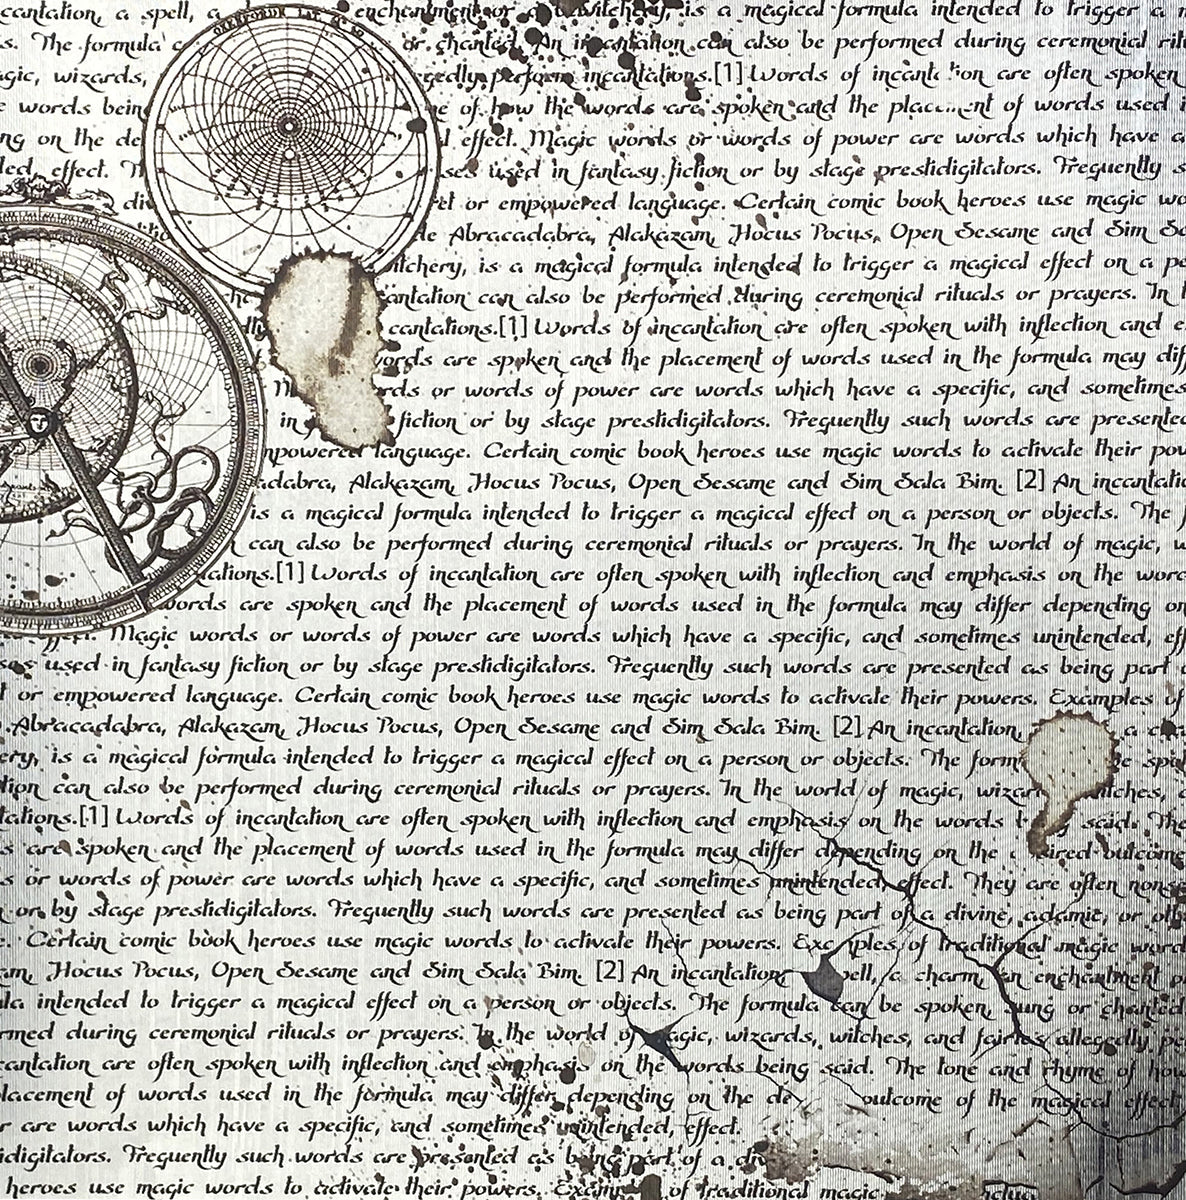 cantation, a spell, a enchantment or a bewitchery, is a magical formula intended to trigger a
s. The formula or chanted. An incantation can also be performed during ceremonial
gic, wizards, perform incantations.[1] Words of incantation are often spoken
words being of how the words are spoken and the placement of words used
on the effect. Magic words or words of power are words which have a
effect. used in fantasy fiction or by stage prestidigitators. Frequently
or empowered language. Certain comic book heroes use magic
Abracadabra, Alakazam, Hocus Pocus, Open Sesame and Sim
is a magical formula intended to trigger a magical effect on a
can also be performed during ceremonial rituals or prayers. In
cantations.[1] Words of incantation are often spoken with inflection and
words are spoken and the placement of words used in the formula may
words or words of power are words which have a specific, and sometimes
in fiction or by stage prestidigitators. Frequently such words are presented
mpowered language. Certain comic book heroes use magic words to activate their
adabra, Alakazam, Hocus Pocus, Open Sesame and Sim Sala Bim. [2] An
is a magical formula intended to trigger a magical effect on a person or objects. The
can also be performed during ceremonial rituals or prayers. In the world of magic,
tations.[1] Words of incantation are often spoken with inflection and emphasis on the
words are spoken and the placement of words used in the formula may differ depending on
effect. Magic words or words of power are words which have a specific, and sometimes unintended,
used in fantasy fiction or by stage prestidigitators. Frequently such words are presented as being part
or empowered language. Certain comic book heroes use magic words to activate their powers. Examples of
Abracadabra, Alakazam, Hocus Pocus, Open Sesame and Sim Sala Bim. [2] An incantation, a
ery, is a magical formula intended to trigger a magical effect on a person or objects. The
tion can also be performed during ceremonial rituals or prayers. In the world of magic,
tations.[1] Words of incantation are often spoken with inflection and emphasis on the words said. The
s are spoken and the placement of words used in the formula may differ depending on the
s or words of power are words which have a specific, and sometimes unintended, effect. They are often
or by stage prestidigitators. Frequently such words are presented as being part of a divine, adamic, or
Certain comic book heroes use magic words to activate their powers. of traditional magic
am, Hocus Pocus, Open Sesame and Sim Sala Bim. [2] An incantation, a charm, an enchantment
ula intended to trigger a magical effect on a person or objects. The formula can be spoken, sung or chanted
rmed during ceremonial rituals or prayers. In the world of magic, wizards, witches, and fairies allegedly
cantation are often spoken with inflection and emphasis on the words being said. The tone and rhyme of how
lacement of words used in the formula may differ depending on the outcome of the magical effect
are words which have a specific, and sometimes unintended, effect.
idigitators. Frequently such words are presented as being part of a
heroes use magic words to activate their powers. of traditional magic